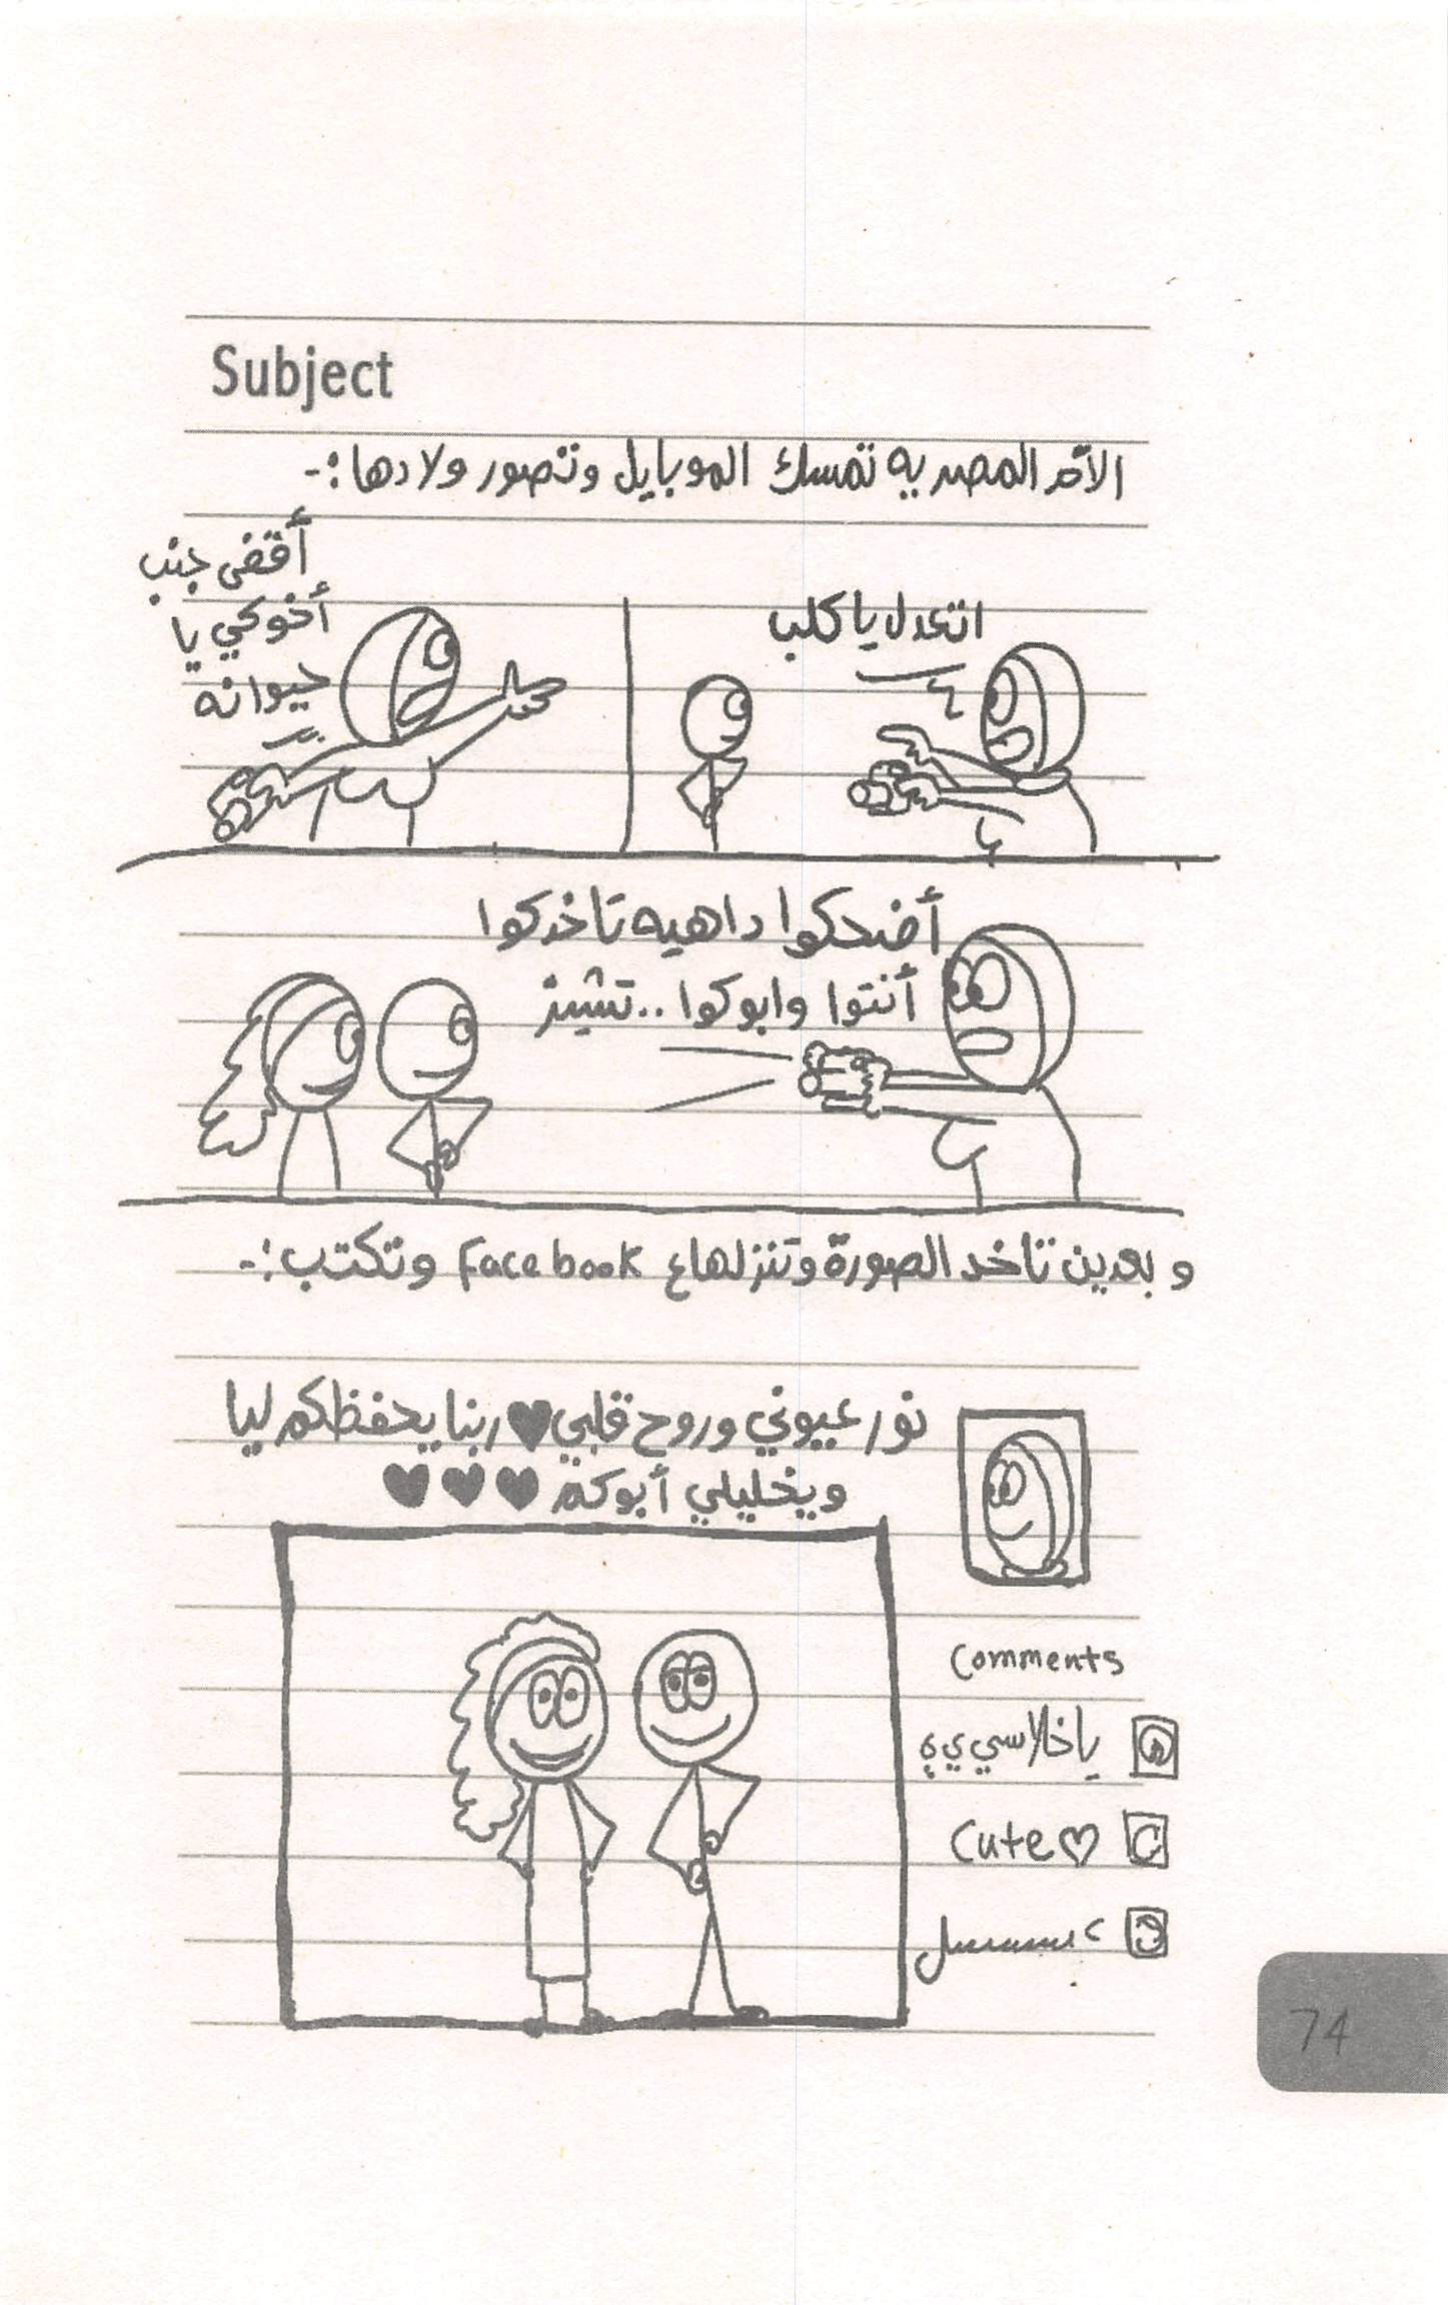 Subject
الأم المصريه تمسك الموبايل وتصور ولادها:-
اتعدل يا كلب
أقفى جنب
أخوكي يا
حيوانه
أضحكوا داهيه تاخدكوا
أنتوا وابوكوا .. تشييز
وبعدين تاخد الصورة وتنزلها ع Facebook وتكتب:-
نور عيوني وروح قلبي ♥ ربنا يحفظكم ليا
ويخليلي أبوكم ♥ ♥ ♥
Comments
ياخلاسي ي ي
Cute ♡
عسسسسل
74